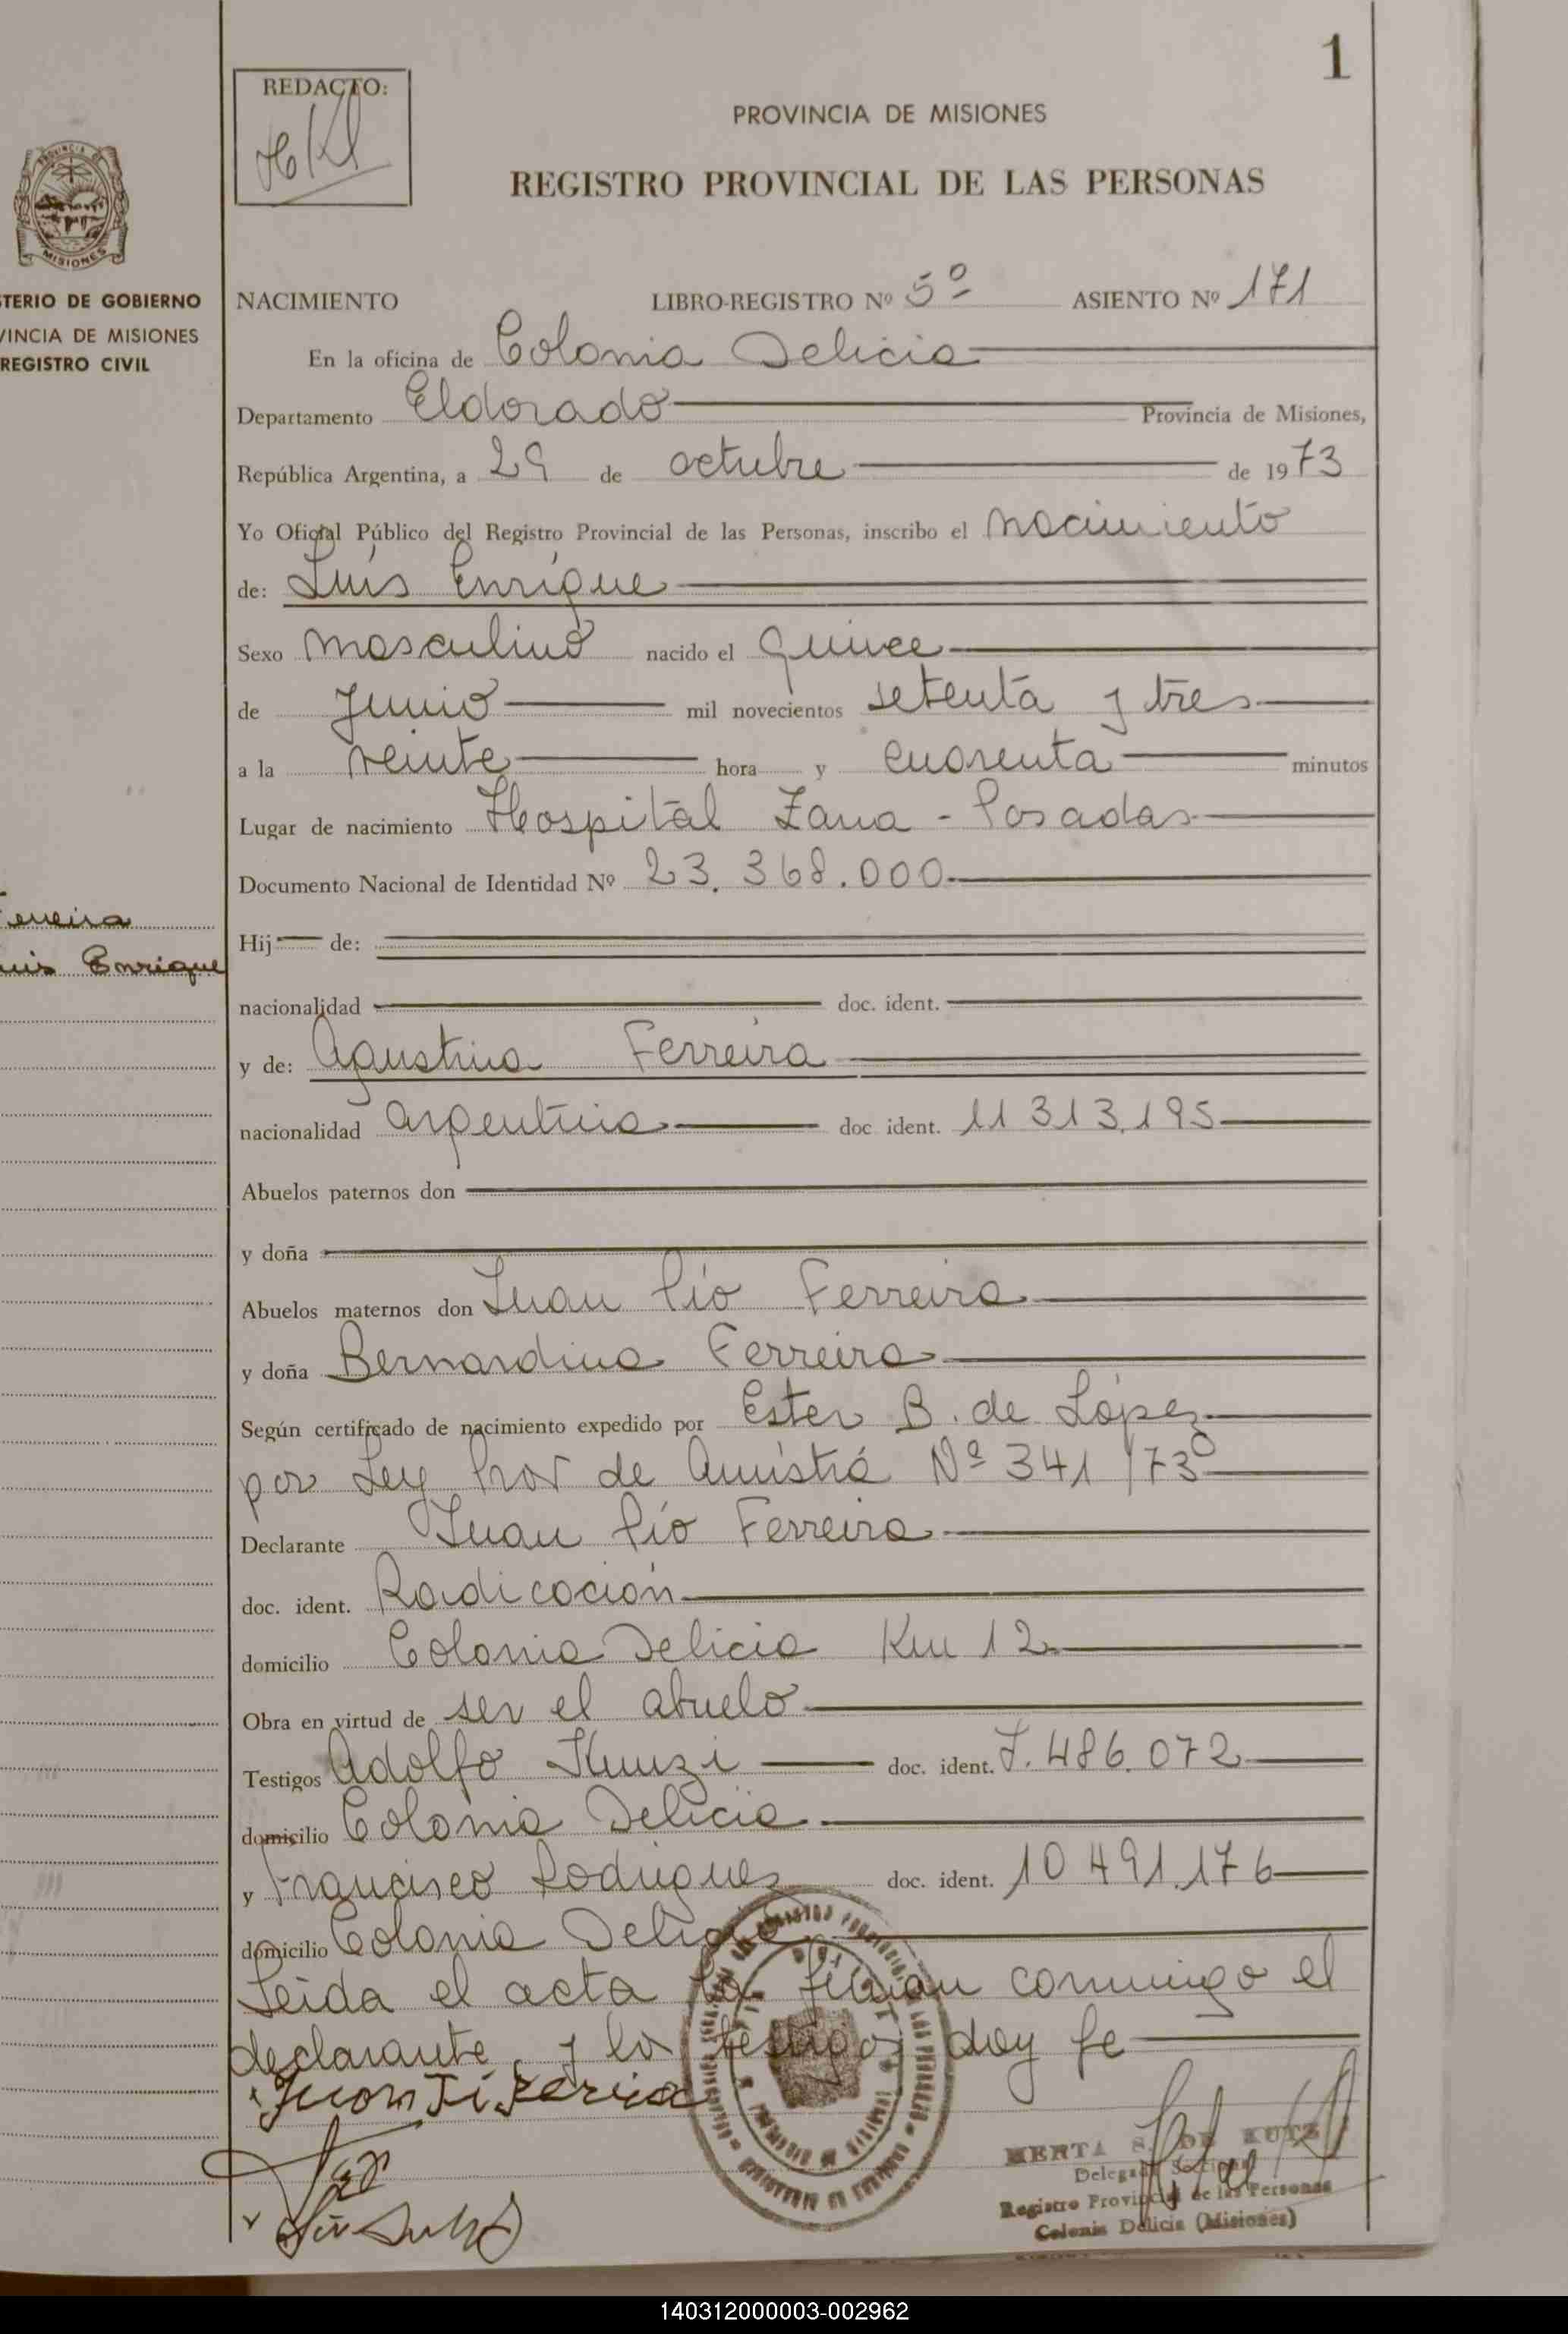 1
REDACTO:
PROVINCIA DE MISIONES
REGISTRO PROVINCIAL DE LAS PERSONAS
PROVINCIA DE
MISIONES
STERIO DE GOBIERNO
VINCIA DE MISIONES
REGISTRO CIVIL
Ferreira
uis Enrique
NACIMIENTO LIBRO-REGISTRO Nº 5º ASIENTO Nº 171
En la oficina de Colonia Delicia
Departamento Eldorado Provincia de Misiones,
República Argentina, a 29 de octubre de 1973
Yo Oficial Público del Registro Provincial de las Personas, inscribo el nacimiento
de: Luís Enríque
Sexo masculino nacido el quince
de Junio mil novecientos setenta y tres
a la veinte hora y cuarenta minutos
Lugar de nacimiento Hospital Zona - Posadas
Documento Nacional de Identidad Nº 23.368.000
Hij de:
nacionalidad doc. ident.
y de: Agustina Ferreira
nacionalidad argentina doc. ident. 11 313.195
Abuelos paternos don
y doña
Abuelos maternos don Juan Pío Ferreira
y doña Bernardina Ferreira
Según certificado de nacimiento expedido por Ester B. de López
por Ley Prov de Amistía Nº 341/73
Declarante Juan Pío Ferreira
doc. ident. Radicación
domicilio Colonia Delicia Km 12
Obra en virtud de ser el abuelo
Testigos Adolfo Kunzi doc. ident. 7.486.072
domicilio Colonia Delicia
y Francisco Rodrigues doc. ident. 10 491.176
domicilio Colonia Delicia
Leída el acta la firman conmigo el
declarante, y los testigos doy fe
HERTA S. DE KUTZ
Delegada Seccional
Registro Provincial de las Personas
Colonia Delicia (Misiones)
140312000003-002962